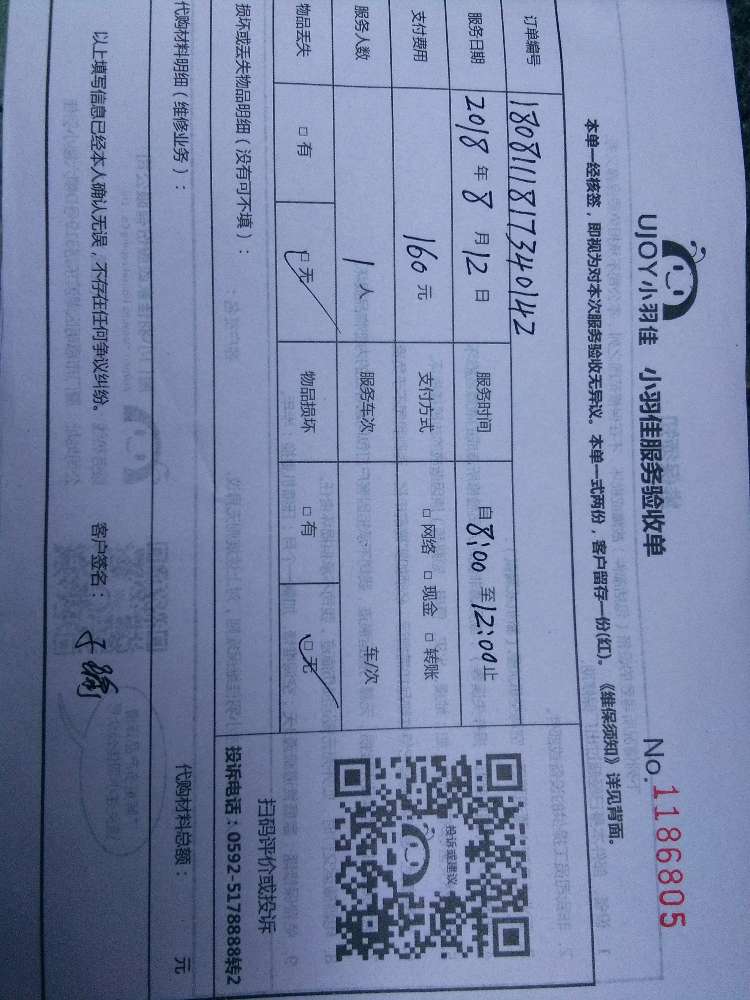 UJOY小羽佳 小羽佳服务验收单
No.1186805
本单一经核签，即视为对本次服务验收无异议。本单一式两份，客户留存一份(红)。《维保须知》详见背面。
订单编号 180811181734014​2
服务日期 2018年8月12日 服务时间 自8:00至12:00止
支付费用 160元 支付方式 □网络 □现金 □转账
服务人数 1人 服务车次 车/次
物品丢失 □有 □无 物品损坏 □有 □无
投诉或建议
扫码评价或投诉
投诉电话：0592-5178888转2
损坏或丢失物品明细（没有可不填）：
代购材料明细（维修业务）： 代购材料总额： 元
以上填写信息已经本人确认无误，不存在任何争议纠纷。 客户签名：